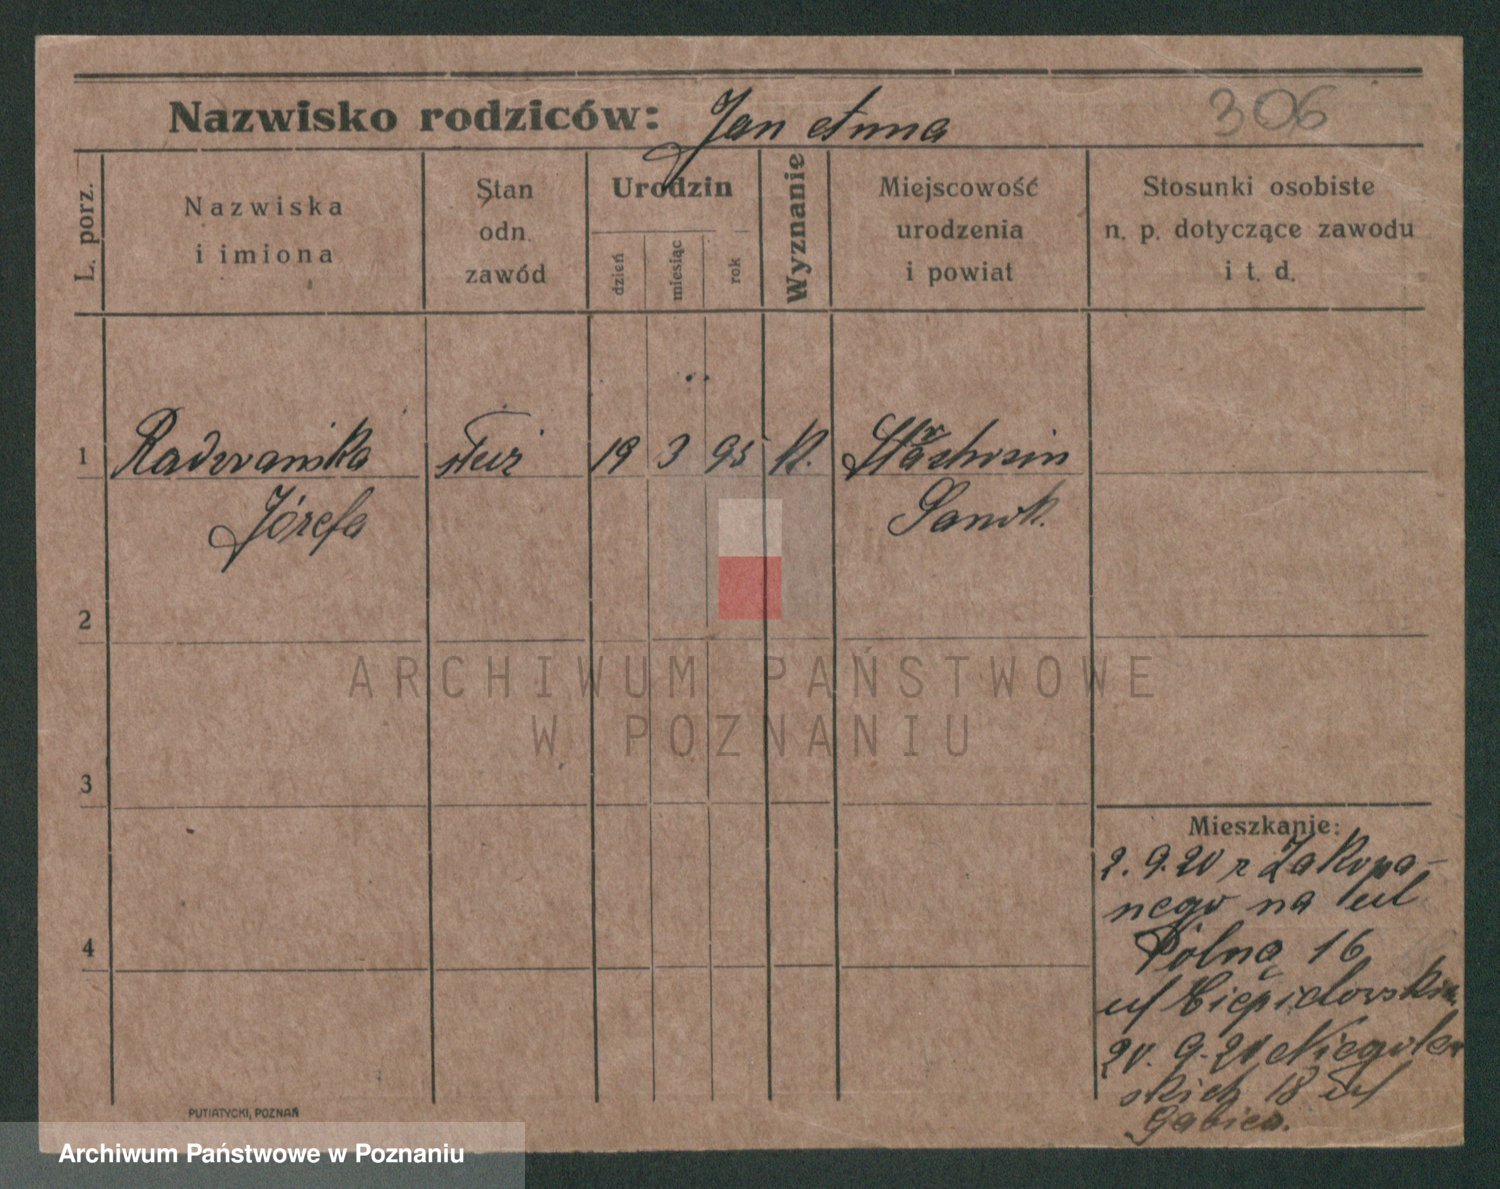 Nazwisko rodziców: Jan Anna
306
L. porz.
Nazwiska
i imiona
Stan
odn.
zawód
Urodzin
dzień
miesiąc
rok
Wyznanie
Miejscowość
urodzenia
i powiat
Stosunki osobiste
n. p. dotyczące zawodu
i t. d.
1 Radwańska służ 19 3 95 K.
Józefa Sanok.
2
3
4
Mieszkanie:
2.9.20 z Zakopa-
nego na ul
Polną 16
ul
20.9.20 Niegolew
skich 18 ul
PUTIATYCKI, POZNAŃ
ARCHIWUM PAŃSTWOWE
W POZNANIU
Archiwum Państwowe w Poznaniu